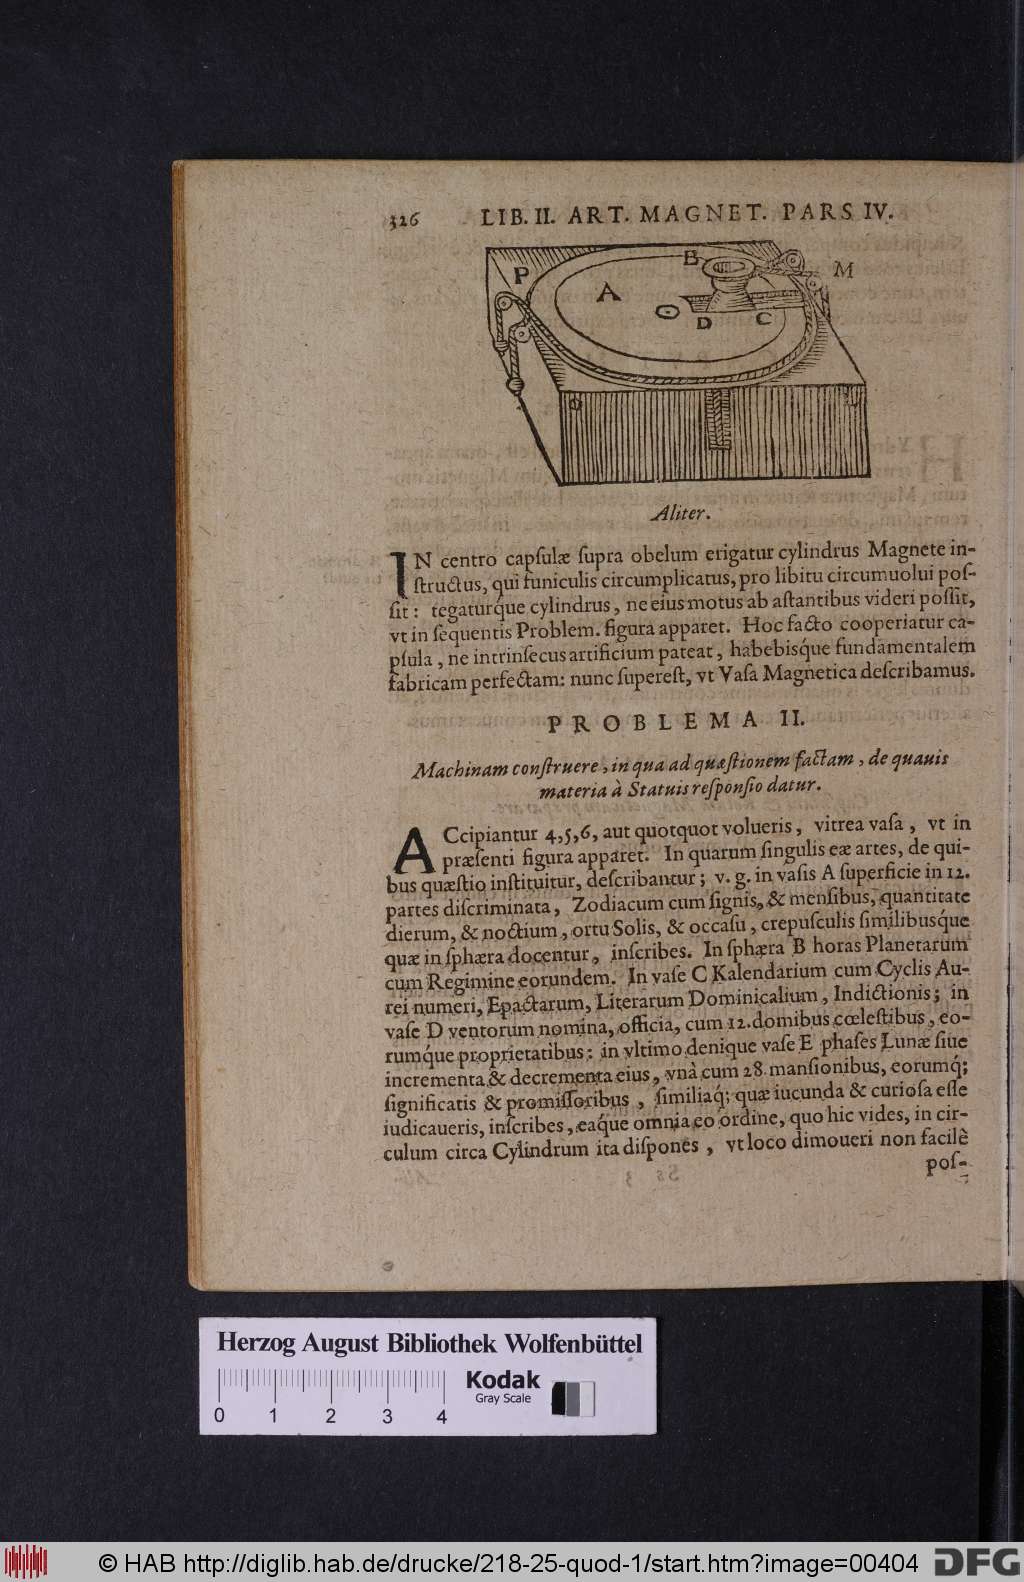 326 LIB. II. ART. MAGNET. PARS IV.
P A B M D C
Aliter.
IN centro capſulæ ſupra obelum erigatur cylindrus Magnete in-
ſtructus, qui funiculis circumplicatus, pro libitu circumuolui poſ-
ſit: tegaturq́ue cylindrus, ne eius motus ab aſtantibus videri poſſit,
vt in ſequentis Problem. figura apparet. Hoc facto cooperiatur ca-
pſula, ne intrinſecus artificium pateat, habebisq́ue fundamentalem
fabricam perfectam: nunc ſupereſt, vt Vaſa Magnetica deſcribamus.
PROBLEMA II.
Machinam conſtruere, in qua ad quæſtionem factam, de quauis
materia à Statuis reſponſio datur.
ACcipiantur 4, 5, 6, aut quotquot volueris, vitrea vaſa, vt in
præſenti figura apparet. In quarum ſingulis eæ artes, de qui-
bus quæſtio inſtituitur, deſcribantur; v. g. in vaſis A ſuperficie in 12.
partes diſcriminata, Zodiacum cum ſignis, & menſibus, quantitate
dierum, & noctium, ortu Solis, & occaſu, crepuſculis ſimilibusq́ue
quæ in ſphæra docentur, inſcribes. In ſphæra B horas Planetarum
cum Regimine eorundem. In vaſe C Kalendarium cum Cyclis Au-
rei numeri, Epactarum, Literarum Dominicalium, Indictionis; in
vaſe D ventorum nomina, officia, cum 12. domibus cœleſtibus, eo-
rumq́ue proprietatibus: in vltimo denique vaſe E phaſes Lunæ ſiue
incrementa & decrementa eius, vnà cum 28. manſionibus, eorumq́;
ſignificatis & promiſſoribus, ſimiliaq́; quæ iucunda & curioſa eſſe
iudicaueris, inſcribes, eaq́ue omnia eo ordine, quo hic vides, in cir-
culum circa Cylindrum ita diſpones, vt loco dimoueri non facilè
poſ-
Herzog August Bibliothek Wolfenbüttel
Kodak
Gray Scale
0 1 2 3 4
© HAB http://diglib.hab.de/drucke/218-25-quod-1/start.htm?image=00404 DFG